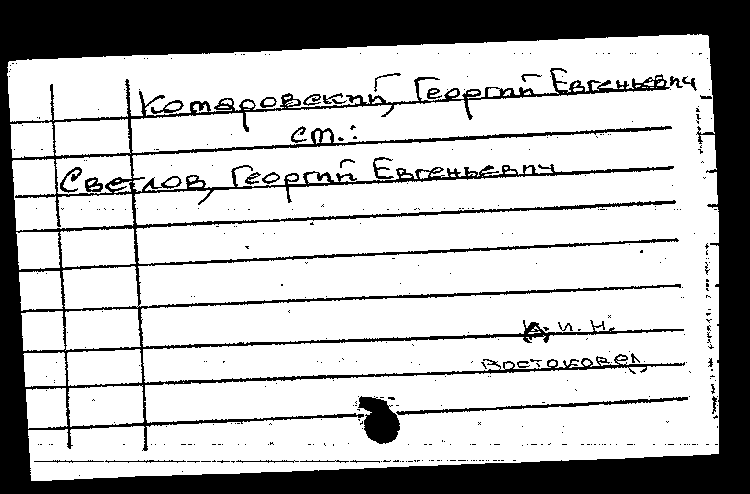 Комаровский, Георгий Евгеньевич
см.:
Светлов, Георгий Евгеньевич
и. н.
востоковед